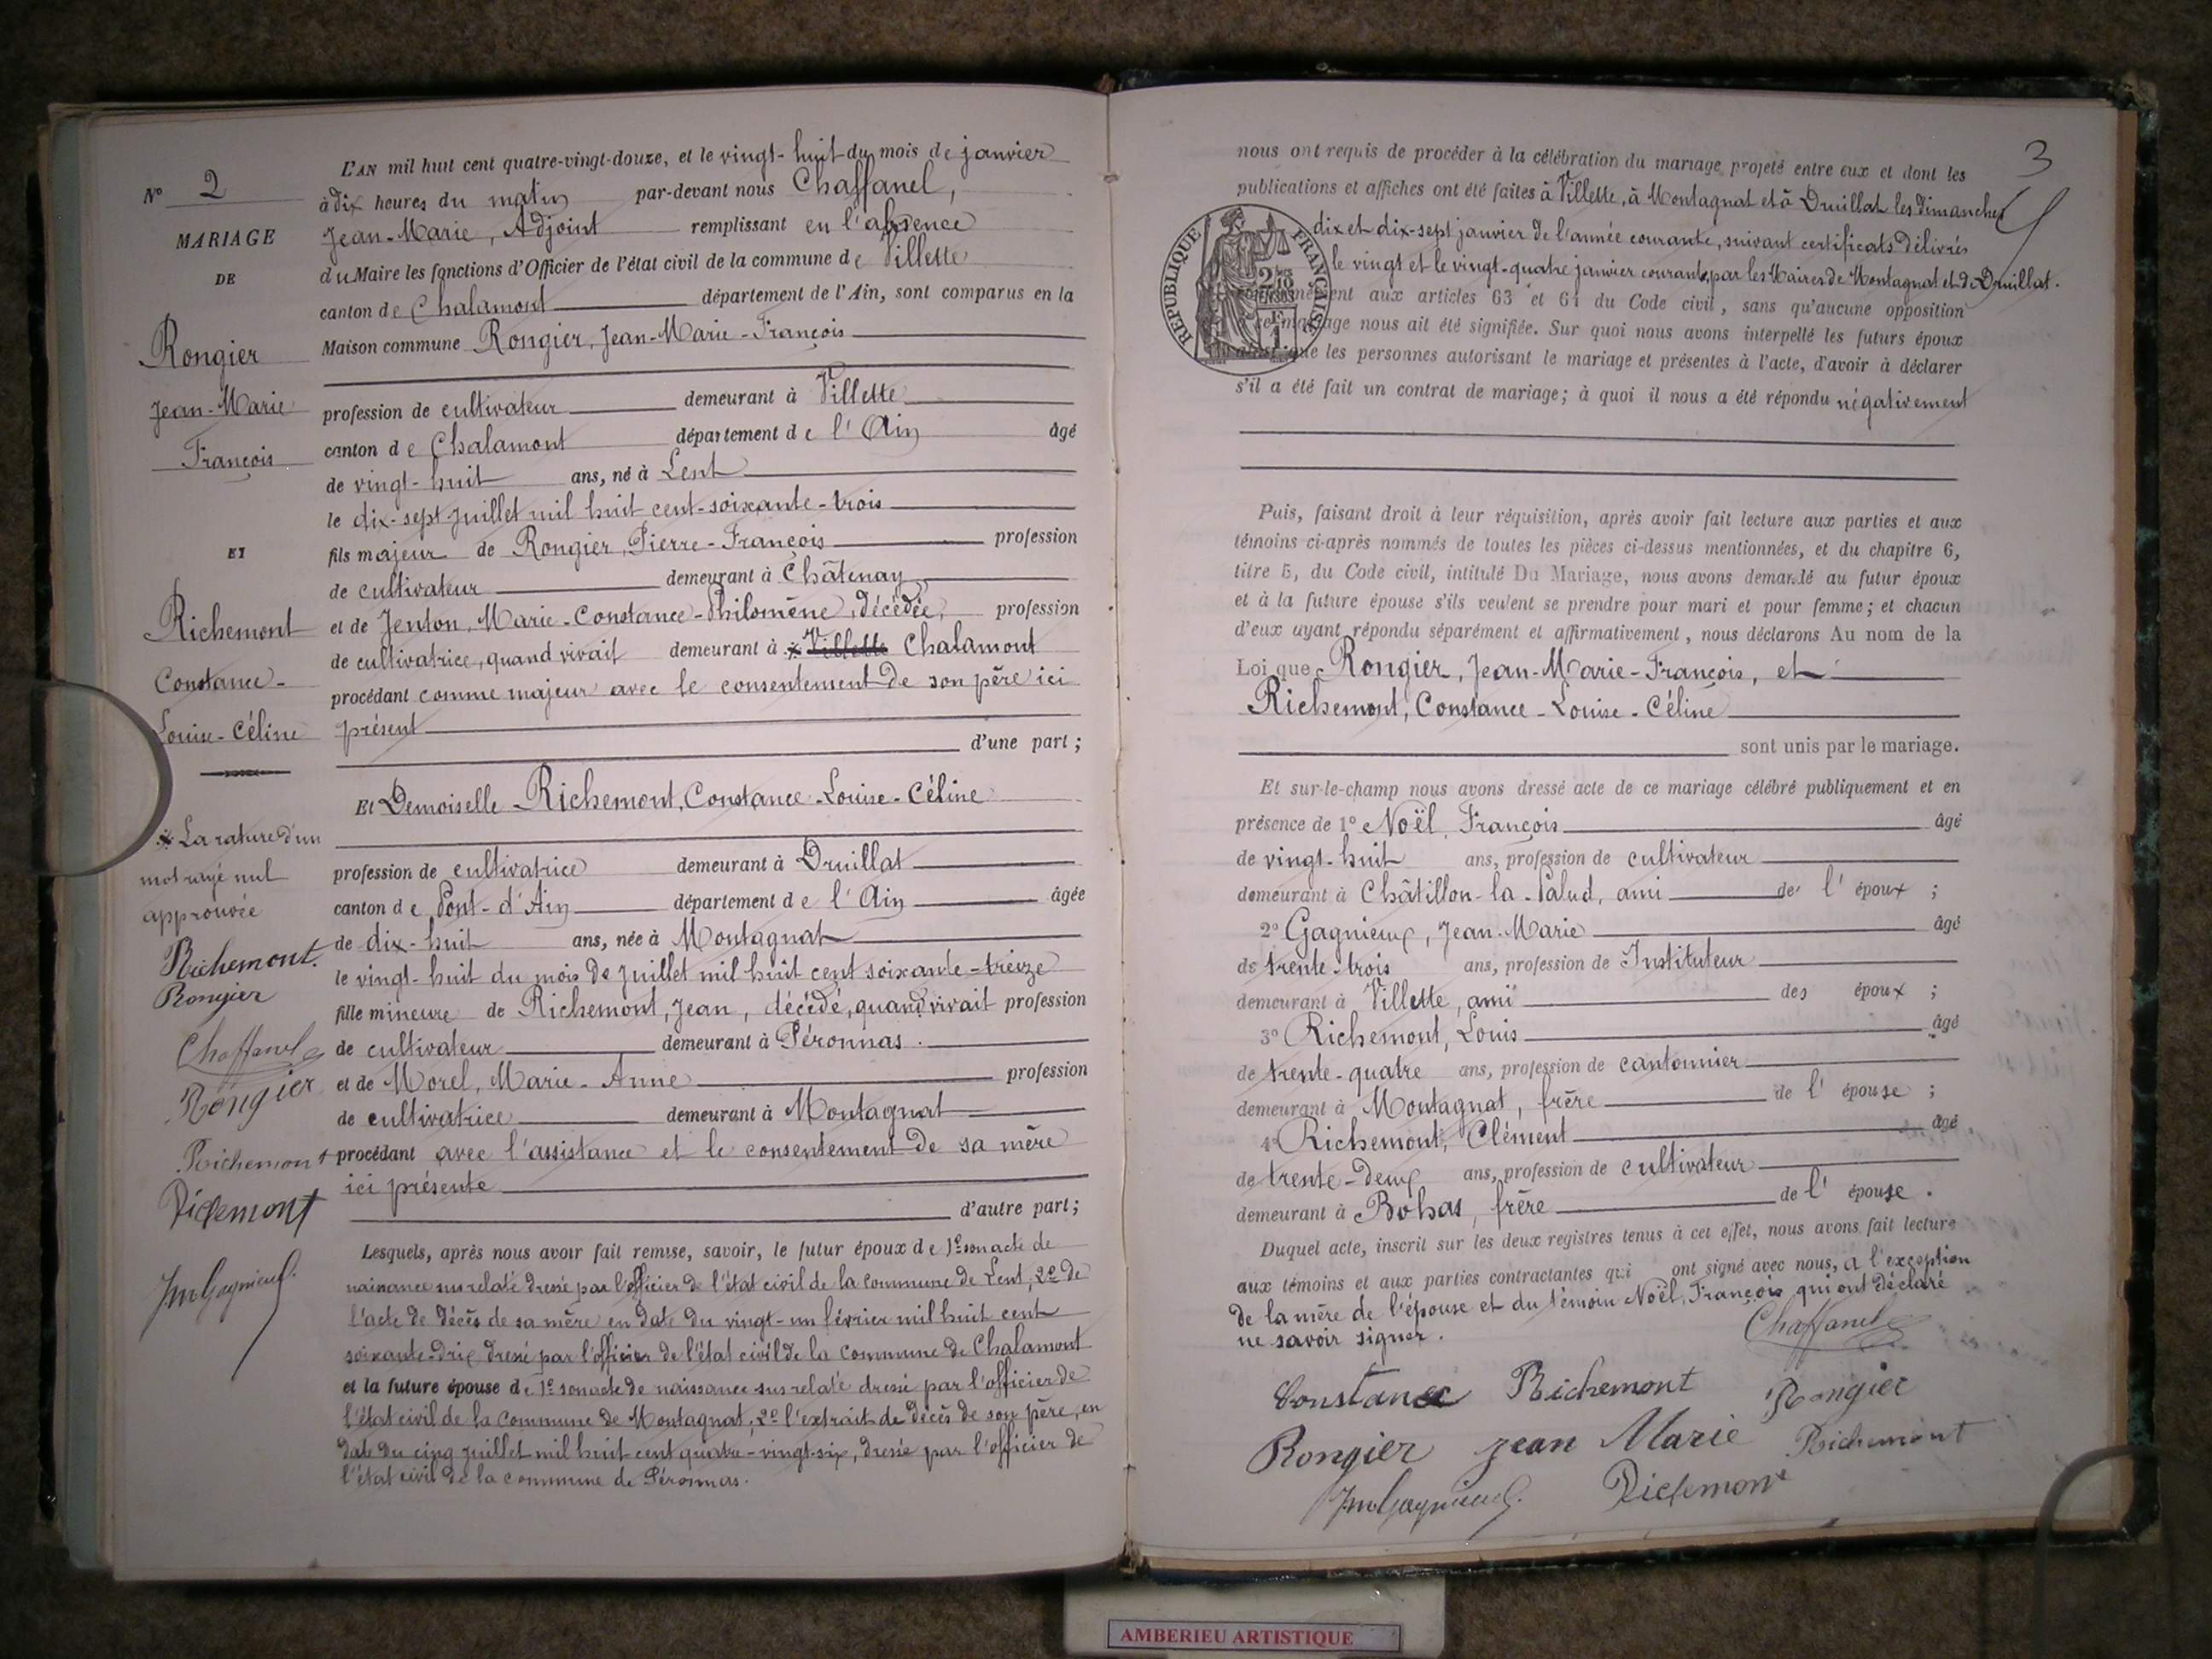 L'AN mil huit cent quatre-vingt-douze, et le vingt-huit du mois de janvier
N° 2
à dix heures du matin par-devant nous Chaffanel,
MARIAGE
Jean-Marie, Adjoint remplissant en l'absence
DE
du Maire les fonctions d'Officier de l'état civil de la commune de Villette
canton de Chalamont département de l'Ain, sont comparus en la
Rongier
Maison commune Rongier, Jean-Marie-François
Jean-Marie
profession de cultivateur demeurant à Villette
François
canton de Chalamont département de l'Ain âgé
de vingt-huit ans, né à Lent
le dix-sept juillet mil huit cent-soixante-trois
ET
fils majeur de Rongier, Pierre-François profession
de cultivateur demeurant à Châtenay
Richemont
et de Jenton, Marie-Constance-Philomène, décédée, profession
de cultivatrice, quand vivait demeurant à Villette Chalamont
Constance-
procédant comme majeur avec le consentement de son père ici
Louise-Céline
présent
d'une part;
Et Demoiselle Richemont, Constance-Louise-Céline
La rature d'un
mot rayé nul
approuvée
profession de cultivatrice demeurant à Druillat
canton de Pont-d'Ain département de l'Ain âgée
de dix-huit ans, née à Montagnat
Richemont.
le vingt-huit du mois de juillet mil huit cent soixante-treize
Rongier
fille mineure de Richemont, Jean, décédé, quand vivait profession
Chaffanel
de cultivateur demeurant à Péronnas.
Rongier
et de Morel, Marie-Anne profession
de cultivatrice demeurant à Montagnat
Richemont
procédant avec l'assistance et le consentement de sa mère
Richemont
ici présente
d'autre part;
Lesquels, après nous avoir fait remise, savoir, le futur époux de 1° son acte de
JmGagnieux.
naissance susrelaté dressé par l'officier de l'état civil de la commune de Lent; 2° de
l'acte de décès de sa mère en date du vingt-un février mil huit cent
soixante-dix dressé par l'officier de l'état civil de la commune de Chalamont
et la future épouse de 1° son acte de naissance susrelaté dressé par l'officier de
l'état civil de la commune de Montagnat; 2° l'extrait de décès de son père, en
date du cinq juillet mil huit cent quatre-vingt-six, dressé par l'officier de
l'état civil de la commune de Péronnas.
3
nous ont requis de procéder à la célébration du mariage projeté entre eux et dont les
publications et affiches ont été faites à Villette, à Montagnat et à Druillat les dimanches
dix et dix-sept janvier de l'année courante, suivant certificats délivrés
le vingt et le vingt-quatre janvier courant, par les Maires de Montagnat et de Druillat.
RÉPUBLIQUE FRANÇAISE
aux articles 63 et 64 du Code civil, sans qu'aucune opposition
nous ait été signifiée. Sur quoi nous avons interpellé les futurs époux
que les personnes autorisant le mariage et présentes à l'acte, d'avoir à déclarer
s'il a été fait un contrat de mariage; à quoi il nous a été répondu négativement
Puis, faisant droit à leur réquisition, après avoir fait lecture aux parties et aux
témoins ci-après nommés de toutes les pièces ci-dessus mentionnées, et du chapitre 6,
titre 5, du Code civil, intitulé Du Mariage, nous avons demandé au futur époux
et à la future épouse s'ils veulent se prendre pour mari et pour femme; et chacun
d'eux ayant répondu séparément et affirmativement, nous déclarons Au nom de la
Loi que Rongier, Jean-Marie-François, et
Richemont, Constance-Louise-Céline
sont unis par le mariage.
Et sur-le-champ nous avons dressé acte de ce mariage célébré publiquement et en
présence de 1° Noël, François âgé
de vingt-huit ans, profession de cultivateur
demeurant à Châtillon-la-Palud, ami de l'époux;
2° Gagnieux, Jean-Marie âgé
de trente-trois ans, profession de Instituteur
demeurant à Villette, ami des époux;
3° Richemont, Louis âgé
de trente-quatre ans, profession de cantonnier
demeurant à Montagnat, frère de l'épouse;
4° Richemont, Clément âgé
de trente-deux ans, profession de cultivateur
demeurant à Bohas, frère de l'épouse.
Duquel acte, inscrit sur les deux registres tenus à cet effet, nous avons fait lecture
aux témoins et aux parties contractantes qui ont signé avec nous, à l'exception
de la mère de l'épouse et du témoin Noël, François qui ont déclaré
ne savoir signer.
Chaffanel
Constance Richemont Rongier
Rongier Jean Marie Richemont
JmGagnieux. Richemont
AMBERIEU ARTISTIQUE